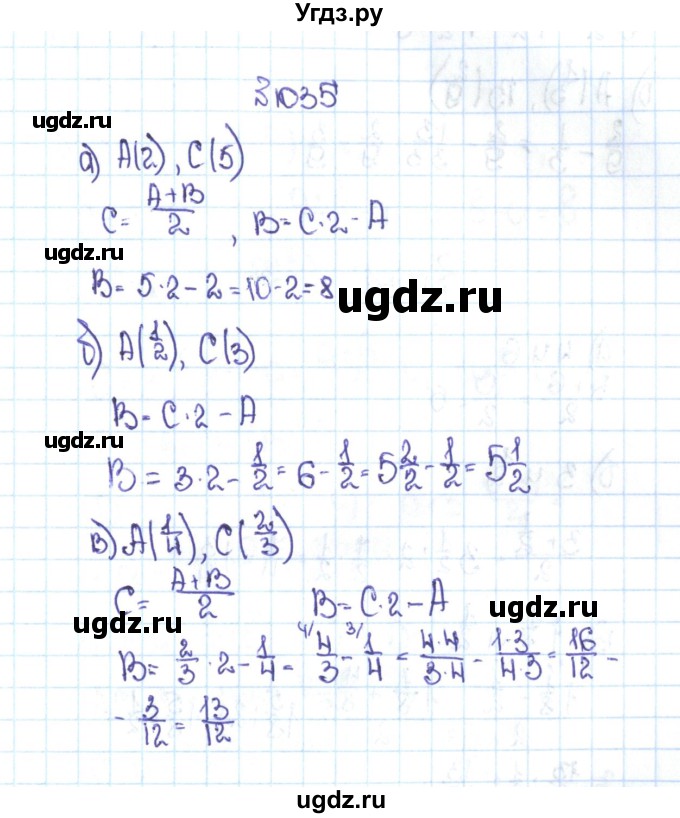 Угдз.ру
№1035
ugdz.ru
а) A(2), C(5)
C = (A+B)/2, B = C·2 - A
ugdz.ru
B = 5·2 - 2 = 10 - 2 = 8
ugdz.ru
б) A(1/2), C(3)
B = C·2 - A
ugdz.ru
B = 3·2 - 1/2 = 6 - 1/2 = 5 2/2 - 1/2 = 5 1/2
ugdz.ru
в) A(1/4), C(2/3)
C = (A+B)/2 B = C·2 - A
ugdz.ru ugdz.ru
B = 2/3 · 2 - 1/4 = 4/ 4/3 - 3/ 1/4 = 4·4/3·4 - 1·3/4·3 = 16/12 -
- 3/12 = 13/12
ugdz.ru
ugdz.ru